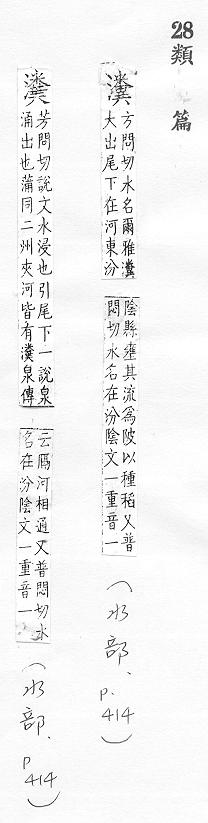 28類篇
瀵
方問切水名爾雅瀵
大出尾下在河東汾
陰縣壅其流爲陂以種稻又普
悶切水名在汾陰文一重音一
(水部、p.414)
瀵
芳問切說文水浸也引尾下一說泉
涌出也蒲同二州夾河皆有瀵泉傳
云厲河相通又普悶切水
名在汾陰文一重音一
(水部、p414)